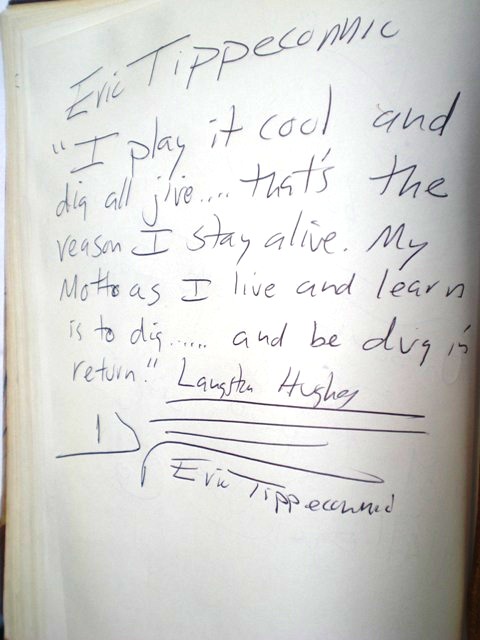 Eric Tippeconnic
"I play it cool and
dig all jive.... that's the
reason I stay alive. My
Motto as I live and learn
is to dig...... and be dug in
return." Langston Hughes
Eric Tippeconnic